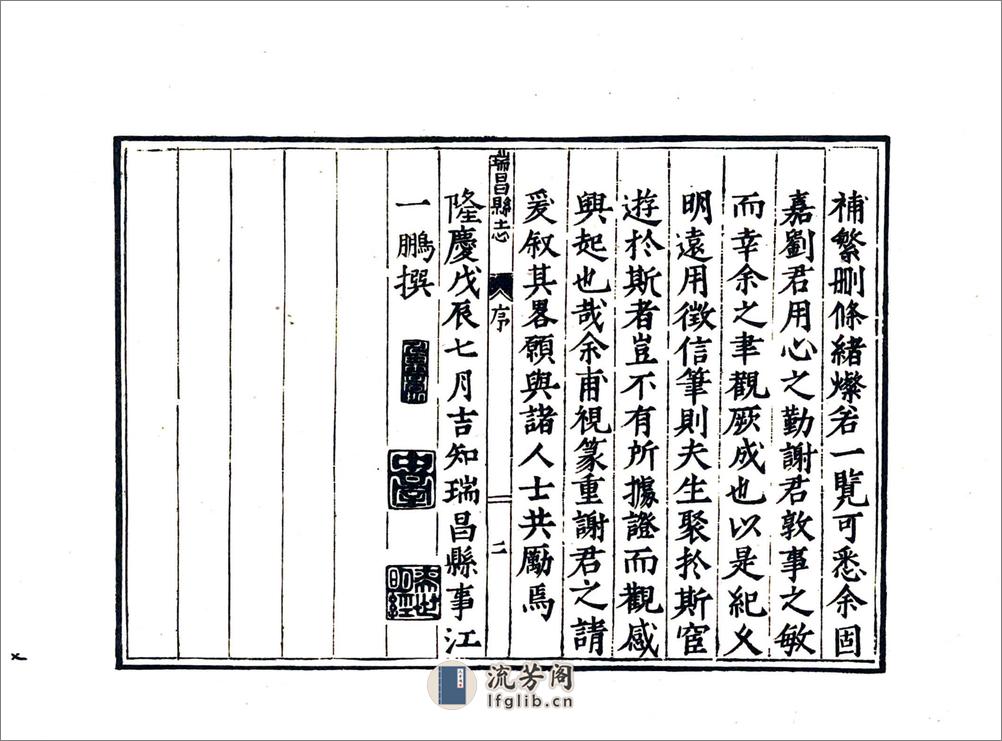 補繁刪條緒燦若一覽可悉余固
嘉劉君用心之勤謝君敦事之敏
而幸余之聿觀厥成也以是紀乆
明遠用徵信筆則夫生聚扵斯宦
遊扵斯者豈不有所據證而觀感
興起也哉余甫視篆重謝君之請
爰叙其畧願與諸人士共勵焉
瑞昌縣志
序
二
隆慶戊辰七月吉知瑞昌縣事江
一鵬撰
奕世明經
流芳阁
lfglib.cn